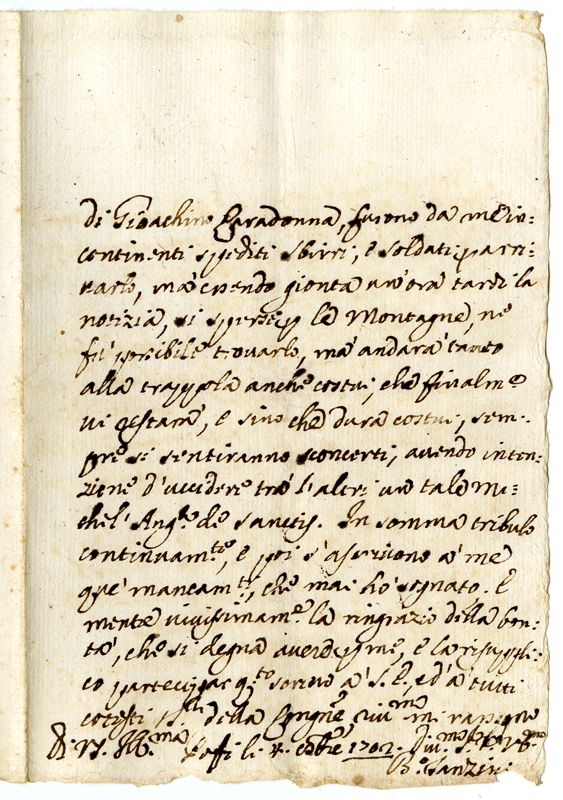 di Gioachino Paradonna, furono da me in=
continenti spediti sbirri, e soldati p arri=
varlo, mà essendo gionta un'ora tardi la
notizia, si sperse p le Montagne, ne
fù possibile trovarlo, mà andarà tanto
alla trappola anche costui, che finalmte
vi restarà, e sino che dura costui, sem=
pre si sentiranno sconcerti, avendo inten=
zione d'uccidere trà l'altri un tale Mi=
chel' Angto de Sanctis. In somma tribulo
continuamte, e poi s'ascrivono à me
que' mancamti, che mai hò sognato. E
mente vivissimamte la ringrazio della bon=
tà, che si degna aver di me, e la risuppli=
co partecipar qto scrivo à S. E, ed à tutti
cotesti SSri della Congne, mi rassegno
Di VS. Illma
Pofi li 4. 8bre 1702.